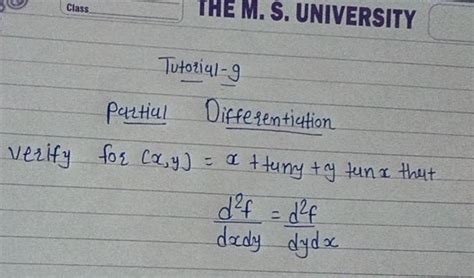 Class
THE M. S. UNIVERSITY
Tutorial-9
Partial Differentiation
verify for (x,y) = x + tany + y tanx that
d²f/dxdy = d²f/dydx